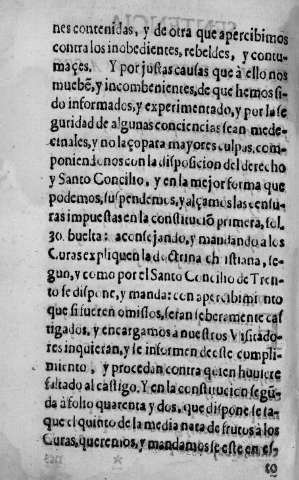 nes contenidas, y de otra que apercibimos
contra los inobedientes, rebeldes, y contu-
maçes. Y por justas causas que à ello nos
muebẽ, y incombenientes, de que hemos si-
do informados, y experimentado, y por la se
guridad de algunas conciencias sean mede-
cinales, y no laço para mayores culpas, com-
poniendonos con la disposicion del derecho
y Santo Concilio, y en la mejor forma que
podemos, suspendemos, y alçamos las censu-
ras impuestas en la constituciõ primera, fol.
30. buelta: aconsejando, y mandando a los
Curas expliquen la doctrina christiana, se-
gun, y como por el Santo Concilio de Tren-
to se dispone, y manda: con apercibimiento
que si fueren omissos, seran seberamente cas
tigados, y encargamos a nuestros Visitado-
res inquieran, y se informen deeste cumpli-
miento, y procedan contra quien huuiere
faltado al castigo. Y en la constitucion segũ-
da à folio quarenta y dos, que dispone se sa-
que el quinto de la media nata de frutos a los
Curas, queremos, y mandamos se este en es-
to